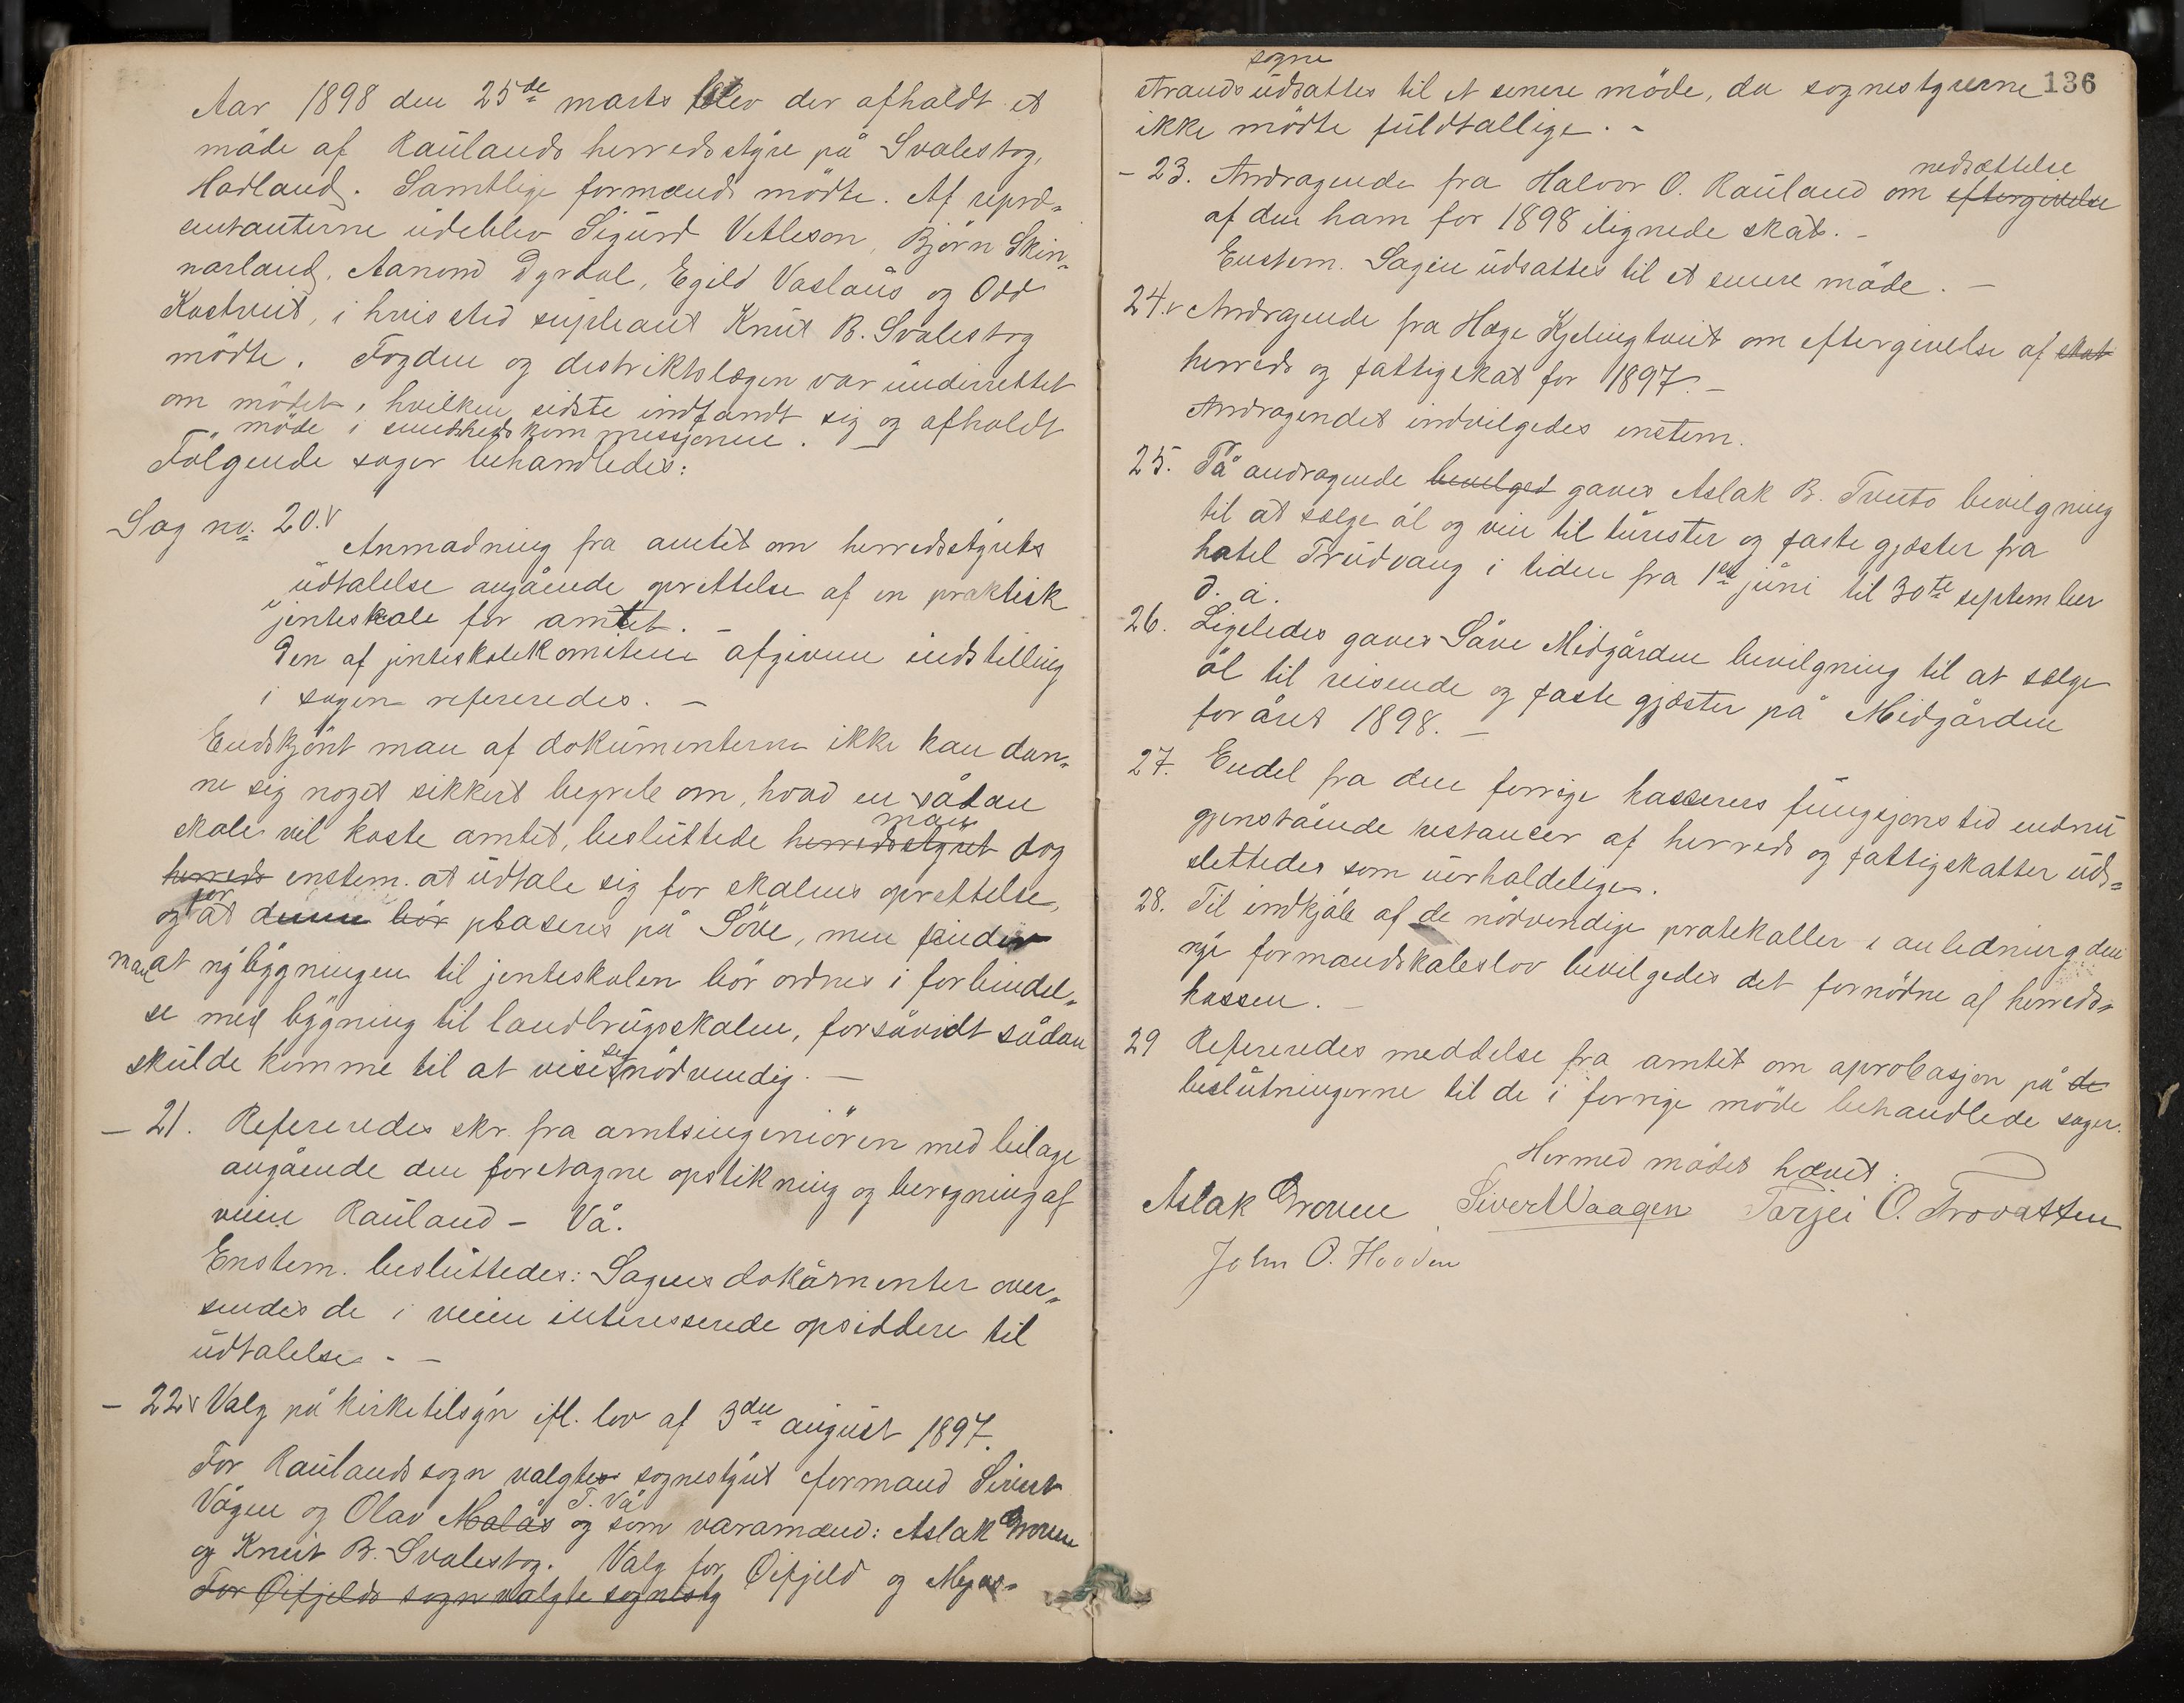 Aar 1898 den 25de marts blev der afholdt et
möde af Raulands herredsstyre på Svalestog,
Hadland. Samtlige formænd mödte. Af repræ-
sentanterne udeblev Sigurd Vetleson, Björn Skin-
narland, Aanond Dyrdal, Egild Vaslaus og Odd
Kostveit, i hvis sted supleant Knut B. Svalestog
mödte. Fogden og distriktslægen var underrettet
om mödet, hvilken sidste indfandt sig og afholdt
möde i sundhedskommissjonen. —
Fölgende sager behandledes:
Sag no. 20.
Anmodning fra amtet om herredsstyrets
udtalelse angående oprettelse af en praktisk
jenteskole for amtet. —
Den af jenteskolekomiteen afgivne indstilling
i sagen refereredes. —
Endskjönt man af dokumenterne ikke kan dan-
ne sig noget sikkert begreb om, hvad en sådan
man
skole vil koste amtet, besluttede herredsstyret dog
herreds enstem. at udtale sig for skolens oprettelse,
for
og at denne bör plaseres på Söve, men finder
man at nybygningen til jenteskolen bör ordnes i forbindel-
se med bygning til landbrugsskolen, forsåvidt sådan
skulde komme til at vise sig nödvendig. —
— 21. Refereredes skr. fra amtsingeniören med bilage
angående den foretagne opstikning og beregning af
veien Rauland - Vå.
Enstem. besluttedes: Sagens dokumenter over-
sendes de i veien interesserede opsiddere til
udtalelse. —
— 22 Valg på kirketilsyn ifl. lov af 3die august 1897.
For Raulands sogn valgtes sognestyret formand Sivert
T. Vå
Vågen og Olav Malås og som varamænd: Aslak Groven
og Knut B. Svalestog. Valg for Öifjeld og Mjøs-
For Öifjelds sogn valgte sognesty
136
sogne
strands udsattes til et senere möde, da sognestyrerne
ikke mödte fuldtallige. -
nedsættelse
- 23. Andragende fra Halvor O. Rauland om eftergivelse
af den ham for 1898 ilignede skat. -
Enstem. Sagen udsattes til et senere möde. —
24. Andragende fra Hæge Kjelingtveit om eftergivelse af skat
herreds og fattigskat for 1897. —
Andragendet indvilgedes enstem.
25. På andragende bevilget gaves Aslak B. Tveito bevilgning
til at sælge öl og vin til turister og faste gjæster fra
hotel Trudvang i tiden fra 1ste juni til 30te september
d. å.
26. Ligeledes gaves Såve Midgården bevilgning til at sælge
öl til reisende og faste gjæster på Midgården
for året 1898. —
27. Endel fra den forrige kasserers fungsjonstid endnu
gjenstående restancer af herreds og fattigskatter uds-
slettedes som uerholdelige.
28. Til indkjöb af de nödvendige protokoller i anledning den
nye formandskabslov bevilgedes det fornödne af herreds-
kassen. —
29 Refereredes meddelse fra amtet om aprobasjon på de
beslutningerne til de i forrige möde behandlede sager.
Hermed mödet hævet.
Aslak Groven Sivert Vaagen Tarjei O. Trovatten
John O. Hovden